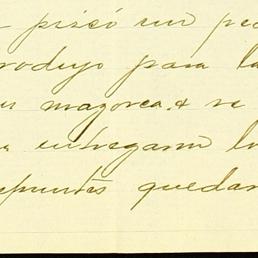 pizcó un pe
rodujo para la
mazorca. & se
entregaron l
puntes quedan